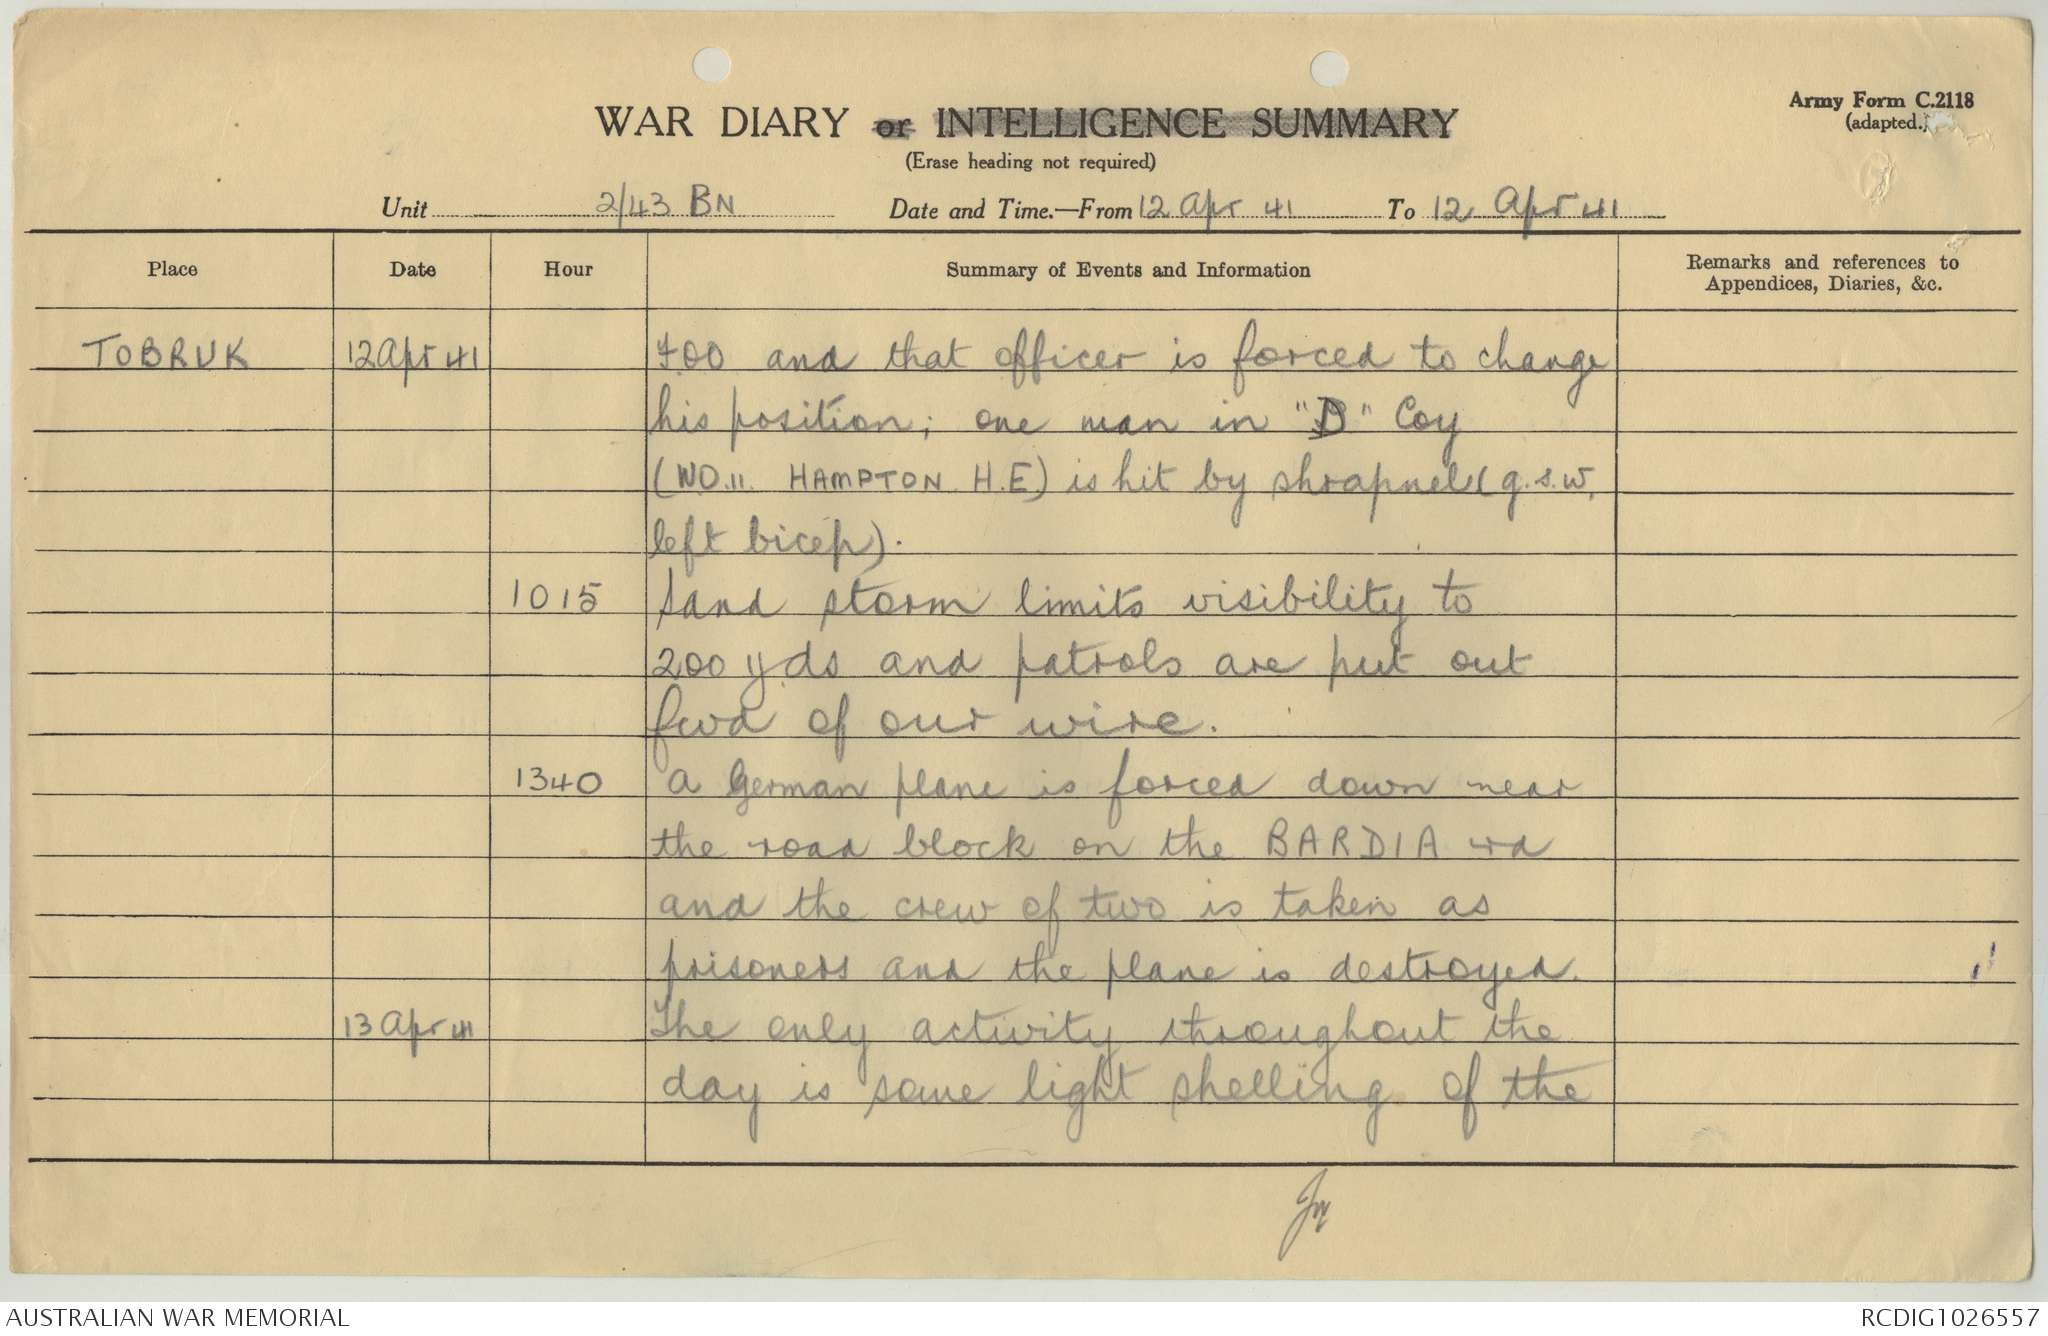 WAR DIARY or INTELLIGENCE SUMMARY
Army Form C.2118
(adapted.)
(Erase heading not required)
Unit 2/43 BN Date and Time.—From 12 Apr 41 To 12 Apr 41
Place Date Hour Summary of Events and Information Remarks and references to Appendices, Diaries, &c.
TOBRUK 12 Apr 41 FOO and that officer is forced to change
his position; one man in "D" Coy
(WO.II. HAMPTON H.E) is hit by shrapnel (g.s.w.
left bicep).
1015 Sand storm limits visibility to
200 yds and patrols are put out
fwd of our wire.
1340 A German plane is forced down near
the road block on the BARDIA rd
and the crew of two is taken as
prisoners and the plane is destroyed.
13 Apr 41 The only activity throughout the
day is some light shelling of the
AUSTRALIAN WAR MEMORIAL
RCDIG1026557